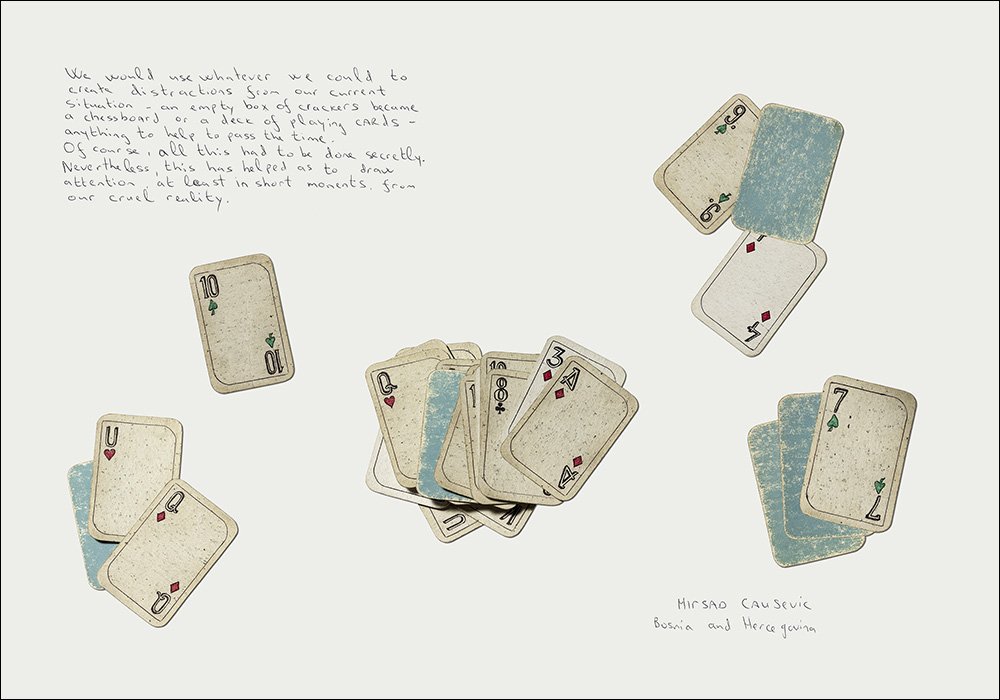 We would use whatever we could to
create distractions from our current
situation - an empty box of crackers became
a chessboard or a deck of playing CARDS -
anything to help to pass the time.
Of course, all this had to be done secretly.
Nevertheless, this has helped as to draw
attention, at least in short moments, from
our cruel reality.
6
6
4
10
10
Q
3
A
10
8
A
7
7
U
Q
Q
U
K
MIRSAD CAUSEVIC
Bosnia and Hercegovina